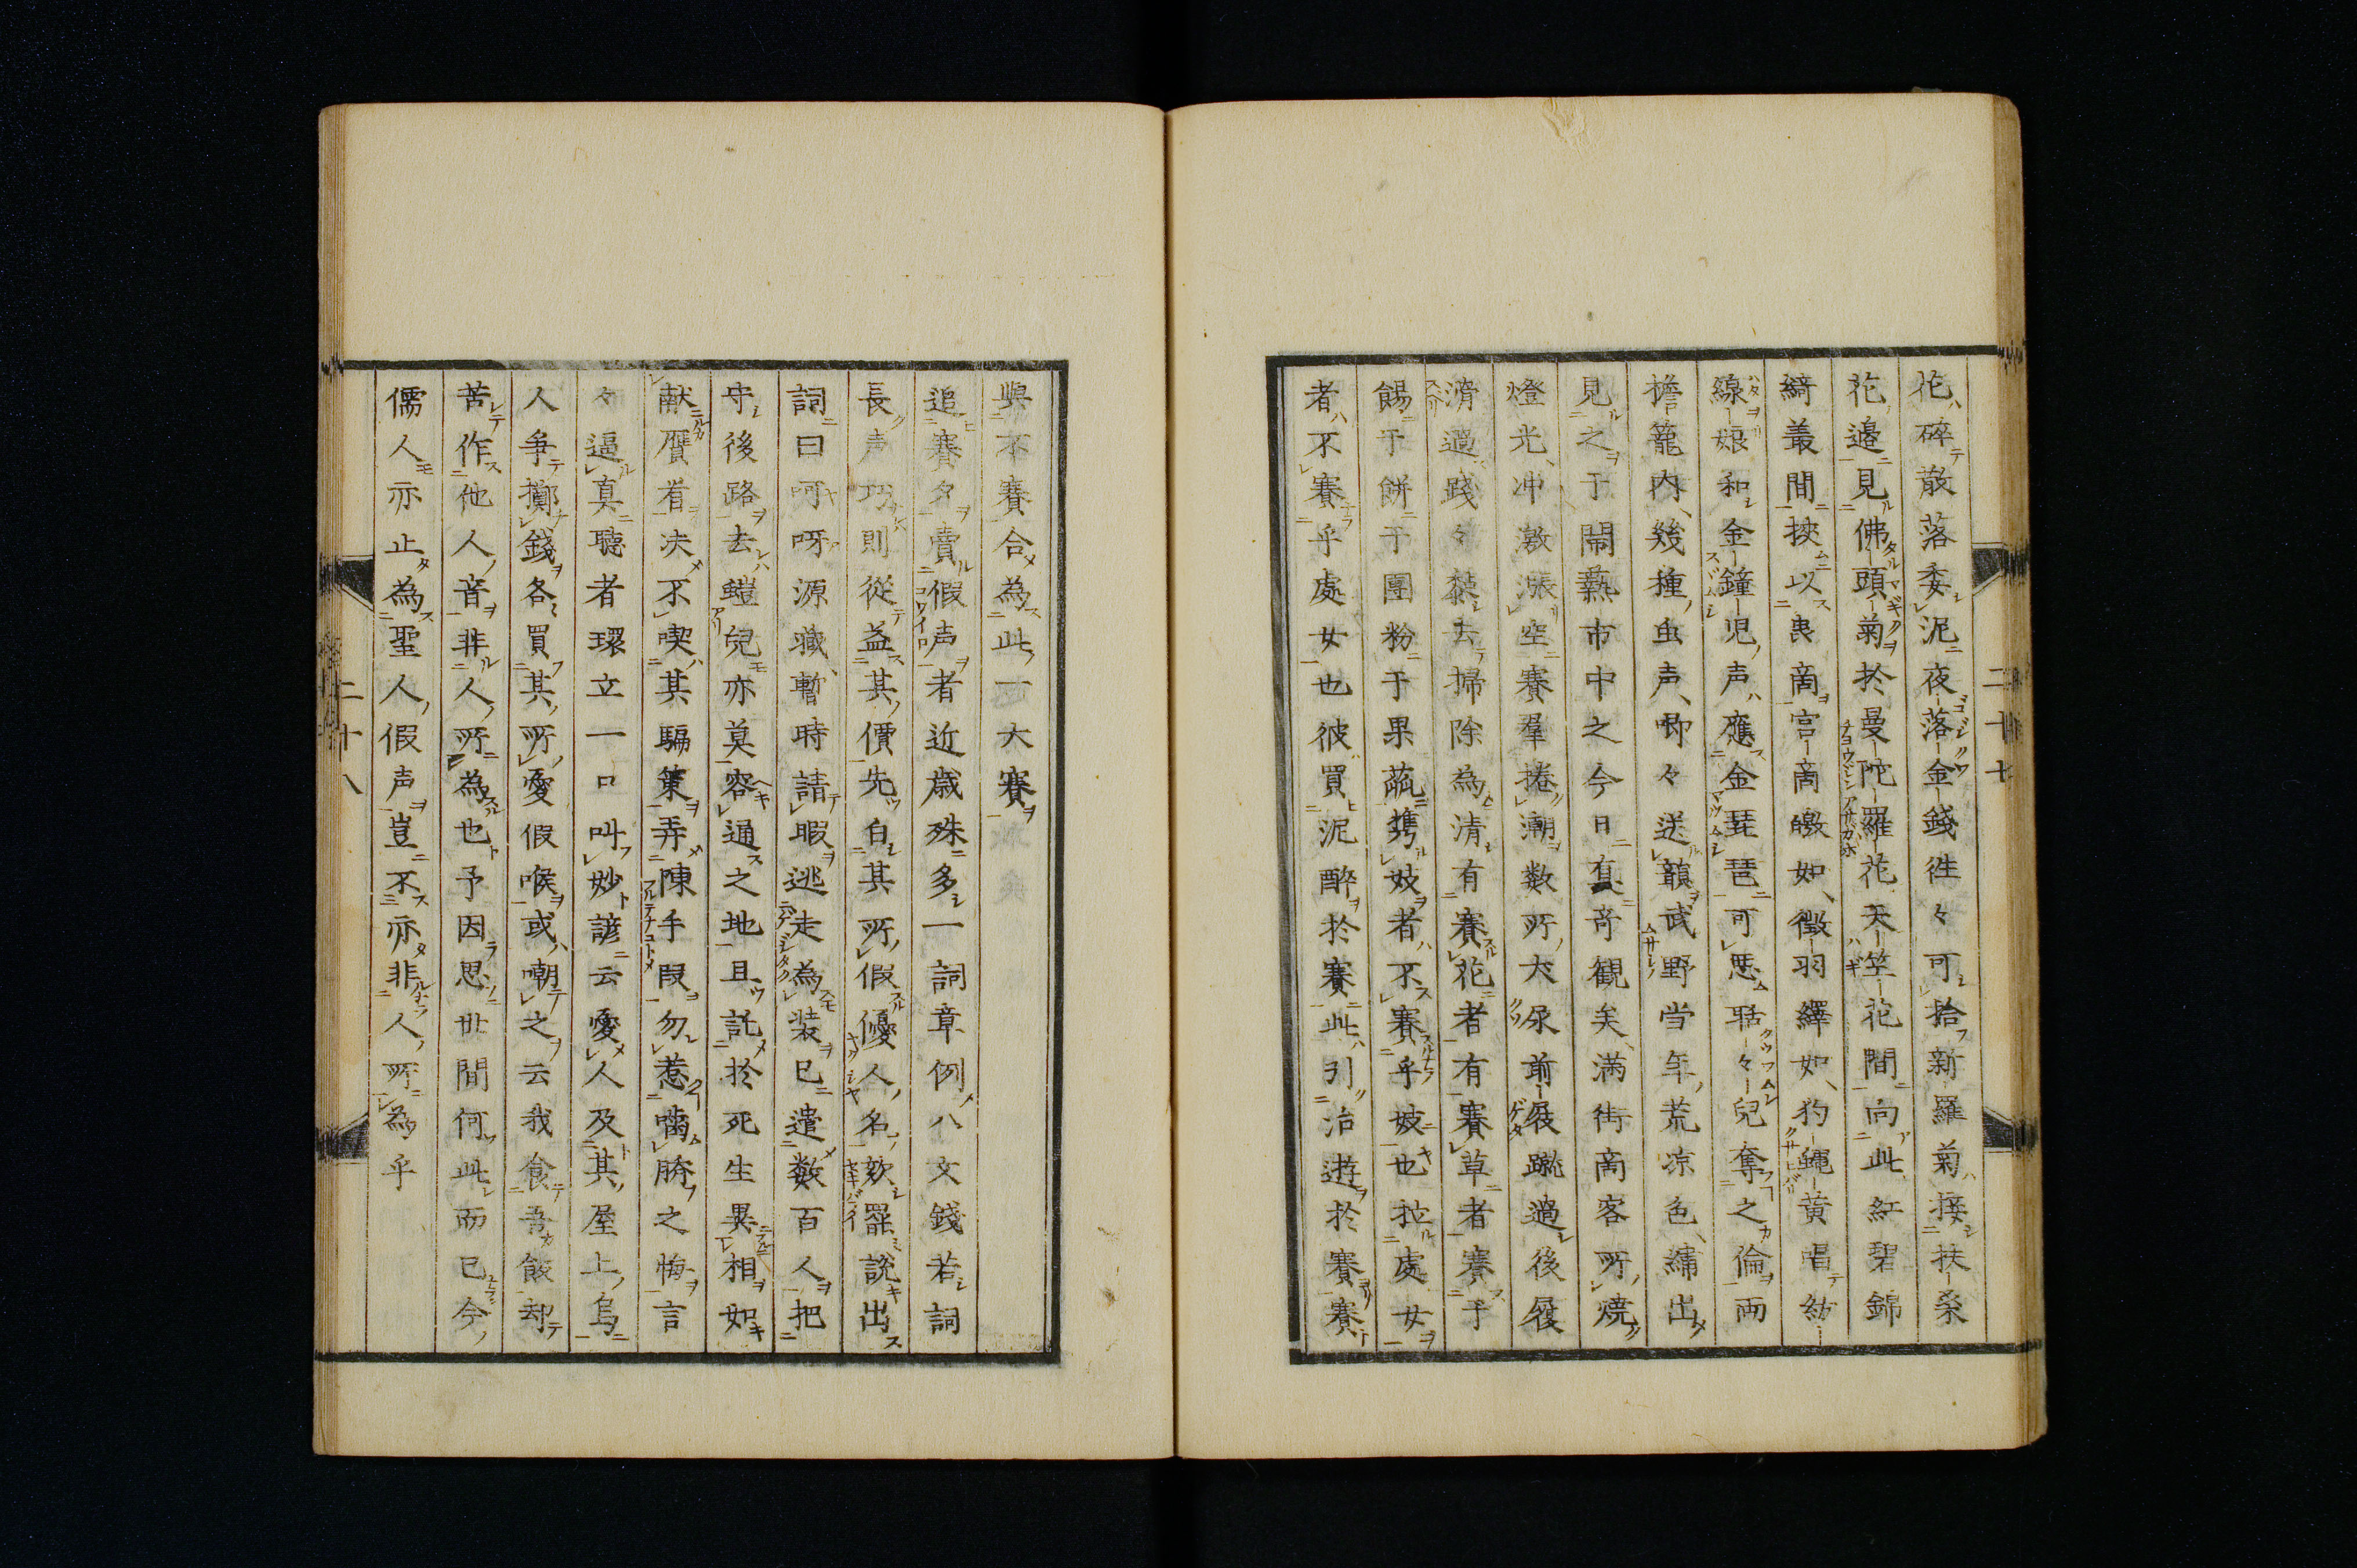 花碎散落委泥夜落金錢徃々可拾新羅菊接扶桒
花邉見佛頭菊於曼陀羅花天竺花間向此紅碧錦
綺叢間挾以喪啇宫啇皦如徴羽繹如豹蠅黄唱紡
線娘和金鐘児声應金琵琶可悪聒々兒奪之倫両
檐籠内幾種虫声喞々送韻武野当年荒凉色繍出
見之于閙𤍠市中之今日眞竒観矣満街啇客所焼
燈光冲激漲空賽羣捲潮数所犬尿前屐蹴過後履
滑過踐々黏去掃除為清有賽花者有賽草者賽乎
餳于餅于團粉于果蓏携妓者不賽乎妓也拉處女
者不賽乎處女也彼買泥醉於賽此引冶遊於賽賽
二十七
與不賽合為此一大賽
追賽夕賣假声者近歳殊多一詞章例八文錢若詞
長声巧則從益其價先白其所假優人名欬罷説出
詞曰呵呀源藏暫時請暇逃走為装已遣数百人把
守後路去螘兒亦莫容通之地且託於死生異相如
献贋首决不喫其騙策弄陳手叚勿惹噛臍之悔言
々逼真聴者環立一口叫妙諺云愛人及其屋上烏
人争擲錢各買其所愛假喉或嘲之云我食吾飯却
苦作他人音非人所為也予因思世間何此而已今
儒人亦止為聖人假声豈不亦非人所為乎
二十八